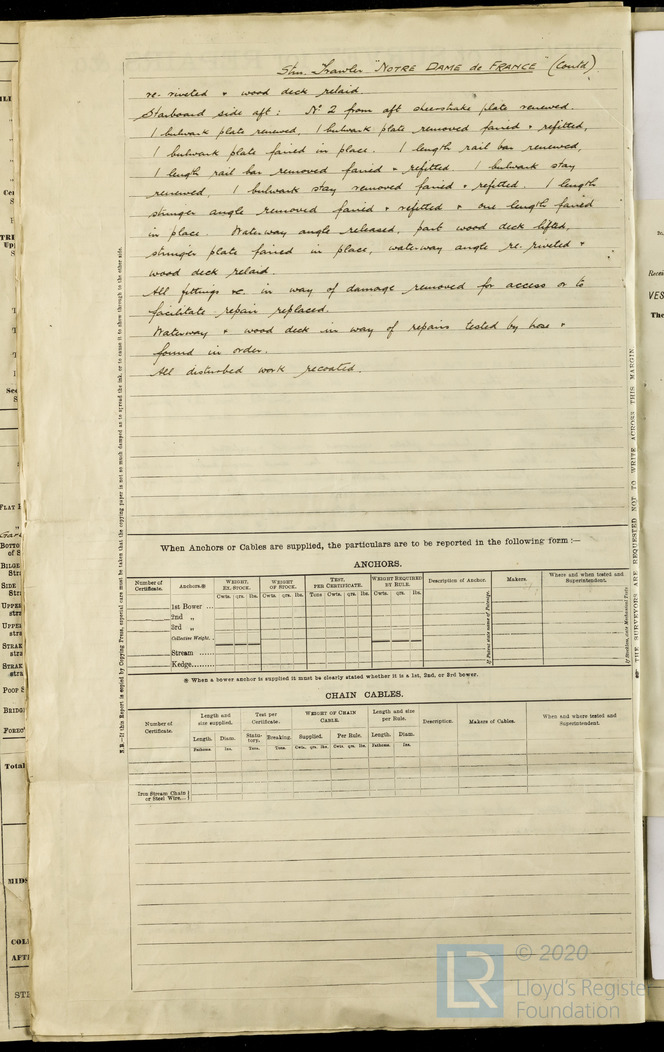 Stm. Trawler "NOTRE DAME de FRANCE" (Contd)
re-riveted & wood deck relaid.
Starboard side aft: No 2 from aft sheerstrake plate renewed.
1 bulwark plate renewed, 1 bulwark plate removed faired & refitted,
1 bulwark plate faired in place. 1 length rail bar renewed,
1 length rail bar removed faired & refitted. 1 bulwark stay
renewed, 1 bulwark stay removed faired & refitted. 1 length
stringer angle removed faired & refitted & one length faired
in place. Waterway angle released, part wood deck lifted,
stringer plate faired in place, waterway angle re-riveted &
wood deck relaid.
All fittings &c. in way of damage removed for access or to
facilitate repair replaced.
Waterway & wood deck in way of repairs tested by hose &
found in order.
All disturbed work recoated.
N.B.—If this Report is copied by Copying Press, especial care must be taken that the copying paper is not so much damped as to spread the ink, or to cause it to show through to the other side.
THE SURVEYORS ARE REQUESTED NOT TO WRITE ACROSS THIS MARGIN
When Anchors or Cables are supplied, the particulars are to be reported in the following form :—
ANCHORS.
Number of Certificate. Anchors.※ WEIGHT, EX. STOCK. WEIGHT OF STOCK. TEST, PER CERTIFICATE. WEIGHT REQUIRED BY RULE. Description of Anchor. Makers. Where and when tested and Superintendent.
Cwts. qrs. lbs. Cwts. qrs. lbs. Tons Cwts. qrs. lbs. Cwts. qrs. lbs.
1st Bower ...
2nd „
3rd „
Collective Weight.
Stream ......
Kedge........
If Patent state name of Patentee.
※ When a bower anchor is supplied it must be clearly stated whether it is a 1st, 2nd, or 3rd bower.
CHAIN CABLES.
Number of Certificate. Length and size supplied. Test per Certificate. WEIGHT OF CHAIN CABLE. Length and size per Rule. Description. Makers of Cables. When and where tested and Superintendent.
Length. Diam. Statutory. Breaking. Supplied. Per Rule. Length. Diam.
Fathoms Ins. Tons. Tons. Cwts. qrs. lbs Cwts. qrs. lbs Fathoms. Ins.
Iron Stream Chain
or Steel Wire...
TRI
FLAT
BOTTO
of S
BILGE
Str
SIDE
Str
UPPE
stra
UPPE
stra
STRAK
stra
STRAK
stra
POOP S
BRIDG
FOREC
Total
MIDS
COL
AFT
VES
The
LR
© 2020
Lloyd's Register
Foundation